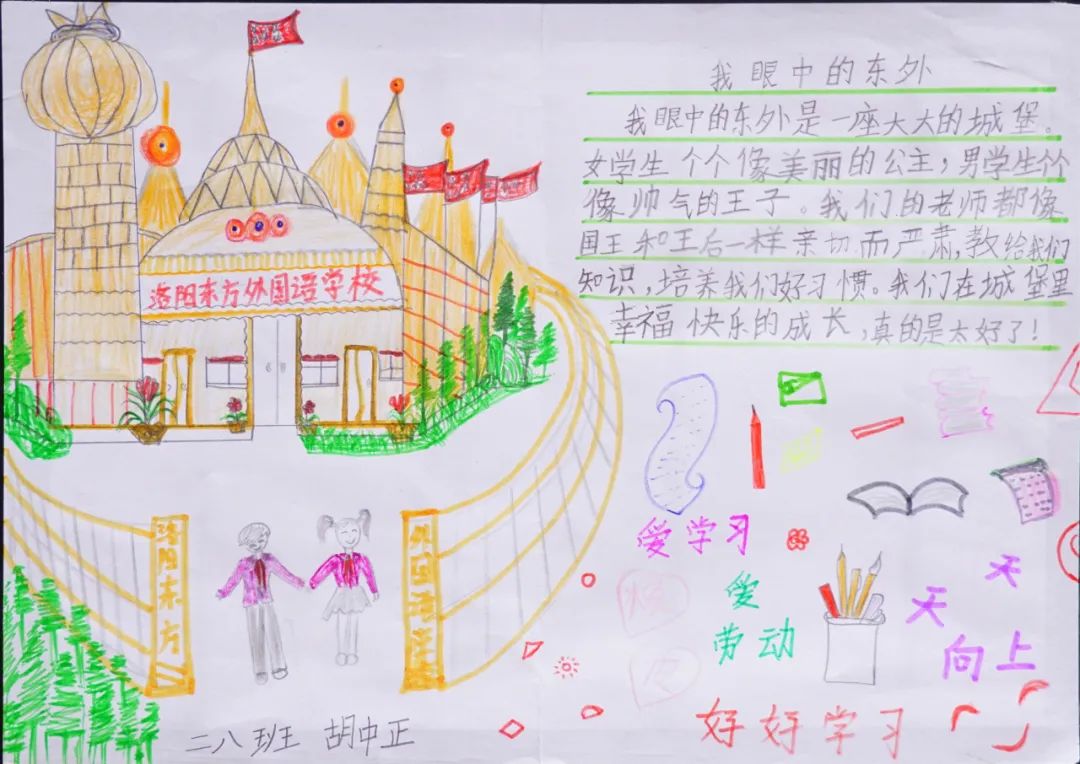 洛阳东方外国语学校
洛阳东方
外国语学校
二八班 胡中正
我眼中的东外
我眼中的东外是一座大大的城堡。
女学生个个像美丽的公主，男学生个个
像帅气的王子。我们的老师都像
国王和王后一样亲切而严肃，教给我们
知识，培养我们好习惯。我们在城堡里
幸福快乐的成长，真的是太好了！
爱学习
爱
劳动
天天
向上
好好学习